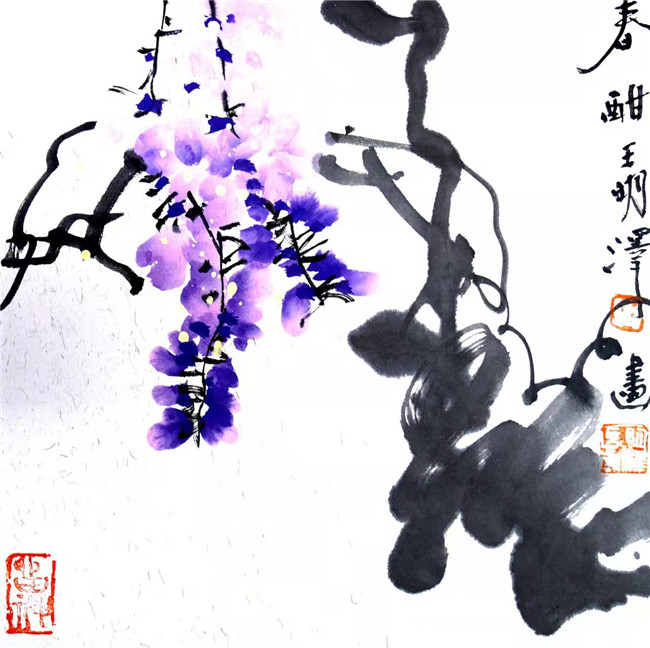 春酣王明澤畫